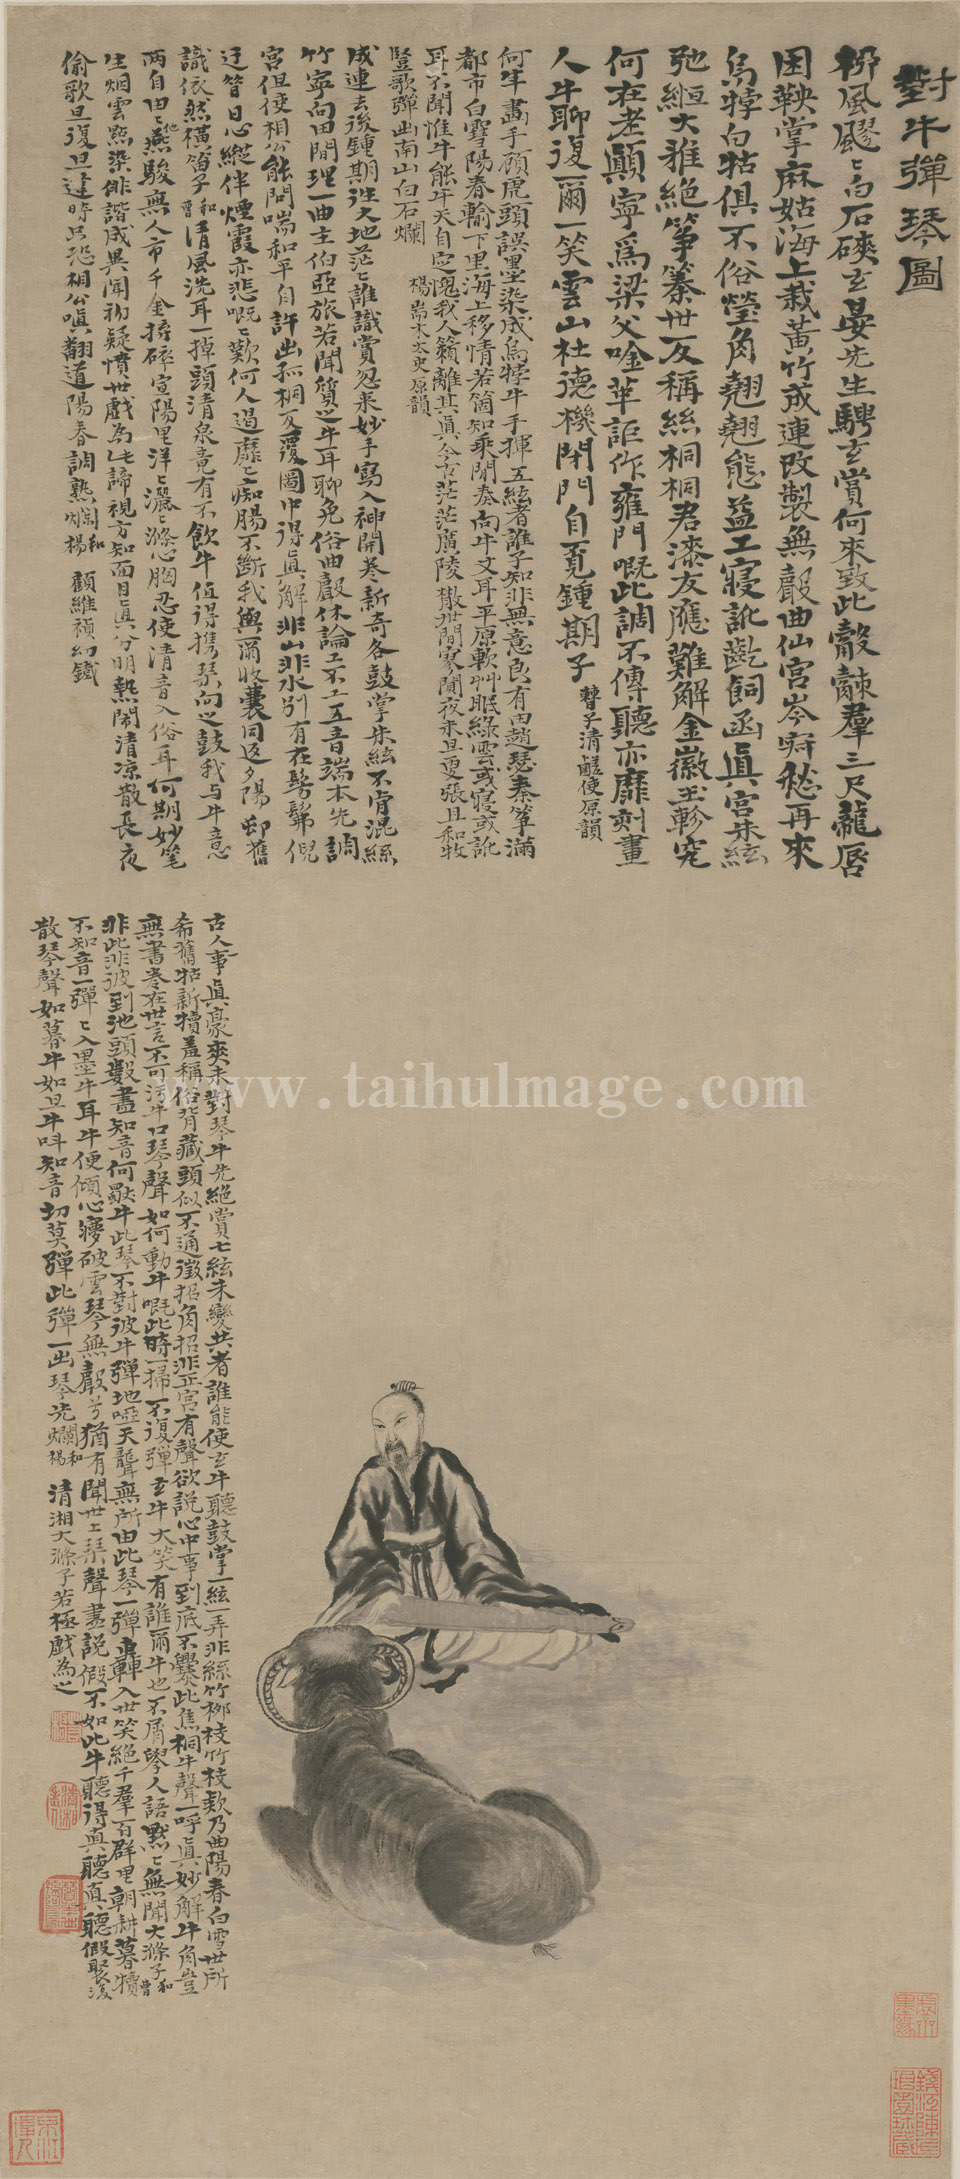 對牛彈琴圖
柳風颼〻白石磢玄晏先生騁玄賞何來致此觳觫羣三尺龍唇
困鞅掌麻姑海上栽黃竹成連改製無聲曲仙宮岑寂愁再來
烏犉白牯俱不俗瑩角翹翹能益工寢訛齝飼函真宮朱絃
弛縆大雅絕箏𥱼世反稱絲桐桐君漆友應難解金徽玉軫究
何在老顛寧爲梁父唫華詎作雍門嘅此調不傳聽亦靡刻畫
人牛聊復爾一笑雲山杜德機閉門自覓鍾期子 督子清鹺使原韻
何年畫手顧虎頭誤墨染成烏犉牛手揮五絃者誰子知非無意良有由趙瑟秦箏滿
都市白雪陽春輸下里海上移情若箇知乘閒奏向牛丈耳平原軟艸眠綠雲或寢或訛
耳不聞惟牛能牛天自定愧我人籟離其真今古茫茫廣陵散世間寥闃夜未旦更張且和牧
豎歌彈出南山白石爛 楊耑木太史原韻
成連去後鍾期往大地茫〻誰識賞忽來妙手寫入神開卷新奇各鼓掌朱絃不肯混絲
竹寧向田間理一曲主伯亞旅若聞質之牛耳聊免俗曲聲休論工不工五音端本先調
宮但使相公能問喘和平自許出孤桐反覆圖中得真解非山非水別有在髣髴倪
迂昝日心縱伴煙霞亦悲嘅〻歎何人過靡〻痴腸不斷我與爾收囊同返夕陽邨舊
識依然橫笛子 和曹
清風洗耳一掉頭清泉竟有不飲牛值得携琴向之鼓我与牛意
兩自由〻他燕駿無人市千金擲碎宣陽里洋〻灑〻滌心胸忍使清音入俗耳何期妙笔
生烟雲點染俳諧成異聞初疑憤世戲為此諦視方知面目真分明熱鬧清凉散長夜
偷歌旦復旦逢時只恐相公嗔翻道陽春調熟爛 和楊 顧維禎幻鐵
古人事真豪爽未對琴牛先絕賞七絃未變共者誰能使玄牛聽鼓掌一絃一弄非絲竹柳枝竹枝欸乃曲陽春白雪世所
希舊牯新犢羞稱俗背藏頭似不通徵招角招非正宮有聲欲說心中事到底不爨此焦桐牛聲一呼真妙解牛角豈
無書卷在世言不可污牛口琴聲如何動牛嘅此時一掃不復彈玄牛大笑有誰爾牛也不屑學人語默〻無聞大滌子 和曹
非此非彼到池頭數盡知音何獨牛此琴不對彼牛彈地啞天聾無所由此琴一彈轟入世笑絕千羣百群里朝耕暮犢
不知音一彈〻入墨牛耳牛便傾心寢破雲琴無聲兮猶有聞世上琴聲盡說假不如此牛聽得真聽真聽假聚復
散琴聲如暮牛如旦牛叫知音切莫彈此彈一出琴先爛 和楊 清湘大滌子若極戲為之
www.taihuImage.com